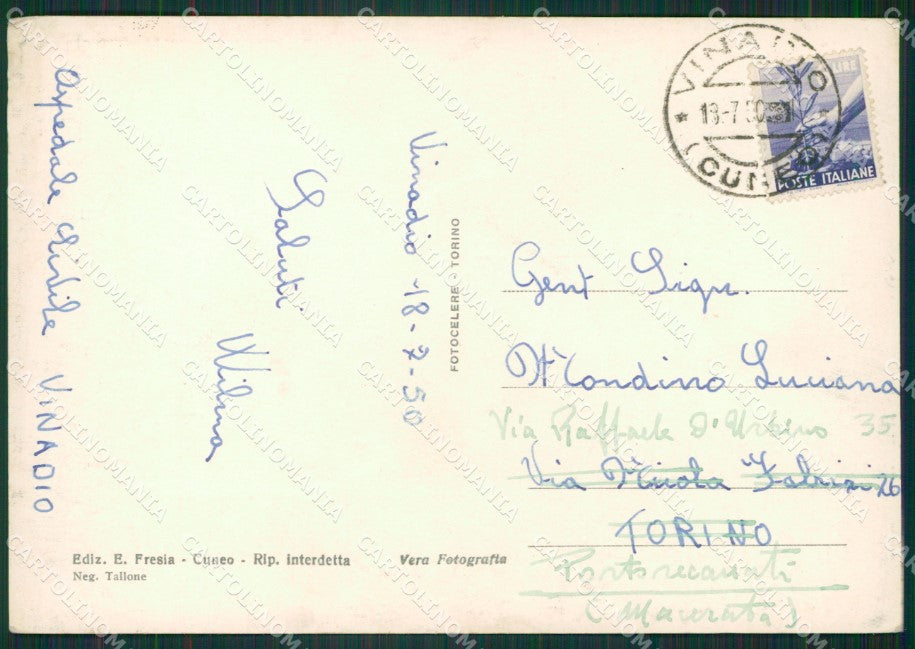 VINADIO
18-7 50
(CUNEO)
LIRE
POSTE ITALIANE
Ospedale Civile VINADIO
Saluti
Wilma
Vinadio 18-7-50
FOTOCELERE - TORINO
Gent Sign.
Mondino Luciana
Via Raffaele D'Urbino 35
Via Nicola Fabrizi 26
TORINO
Portorecanati
(Macerata)
Ediz. E. Fresia - Cuneo - Rip. interdetta
Vera Fotografia
Neg. Tallone
CARTOLINOMANIA